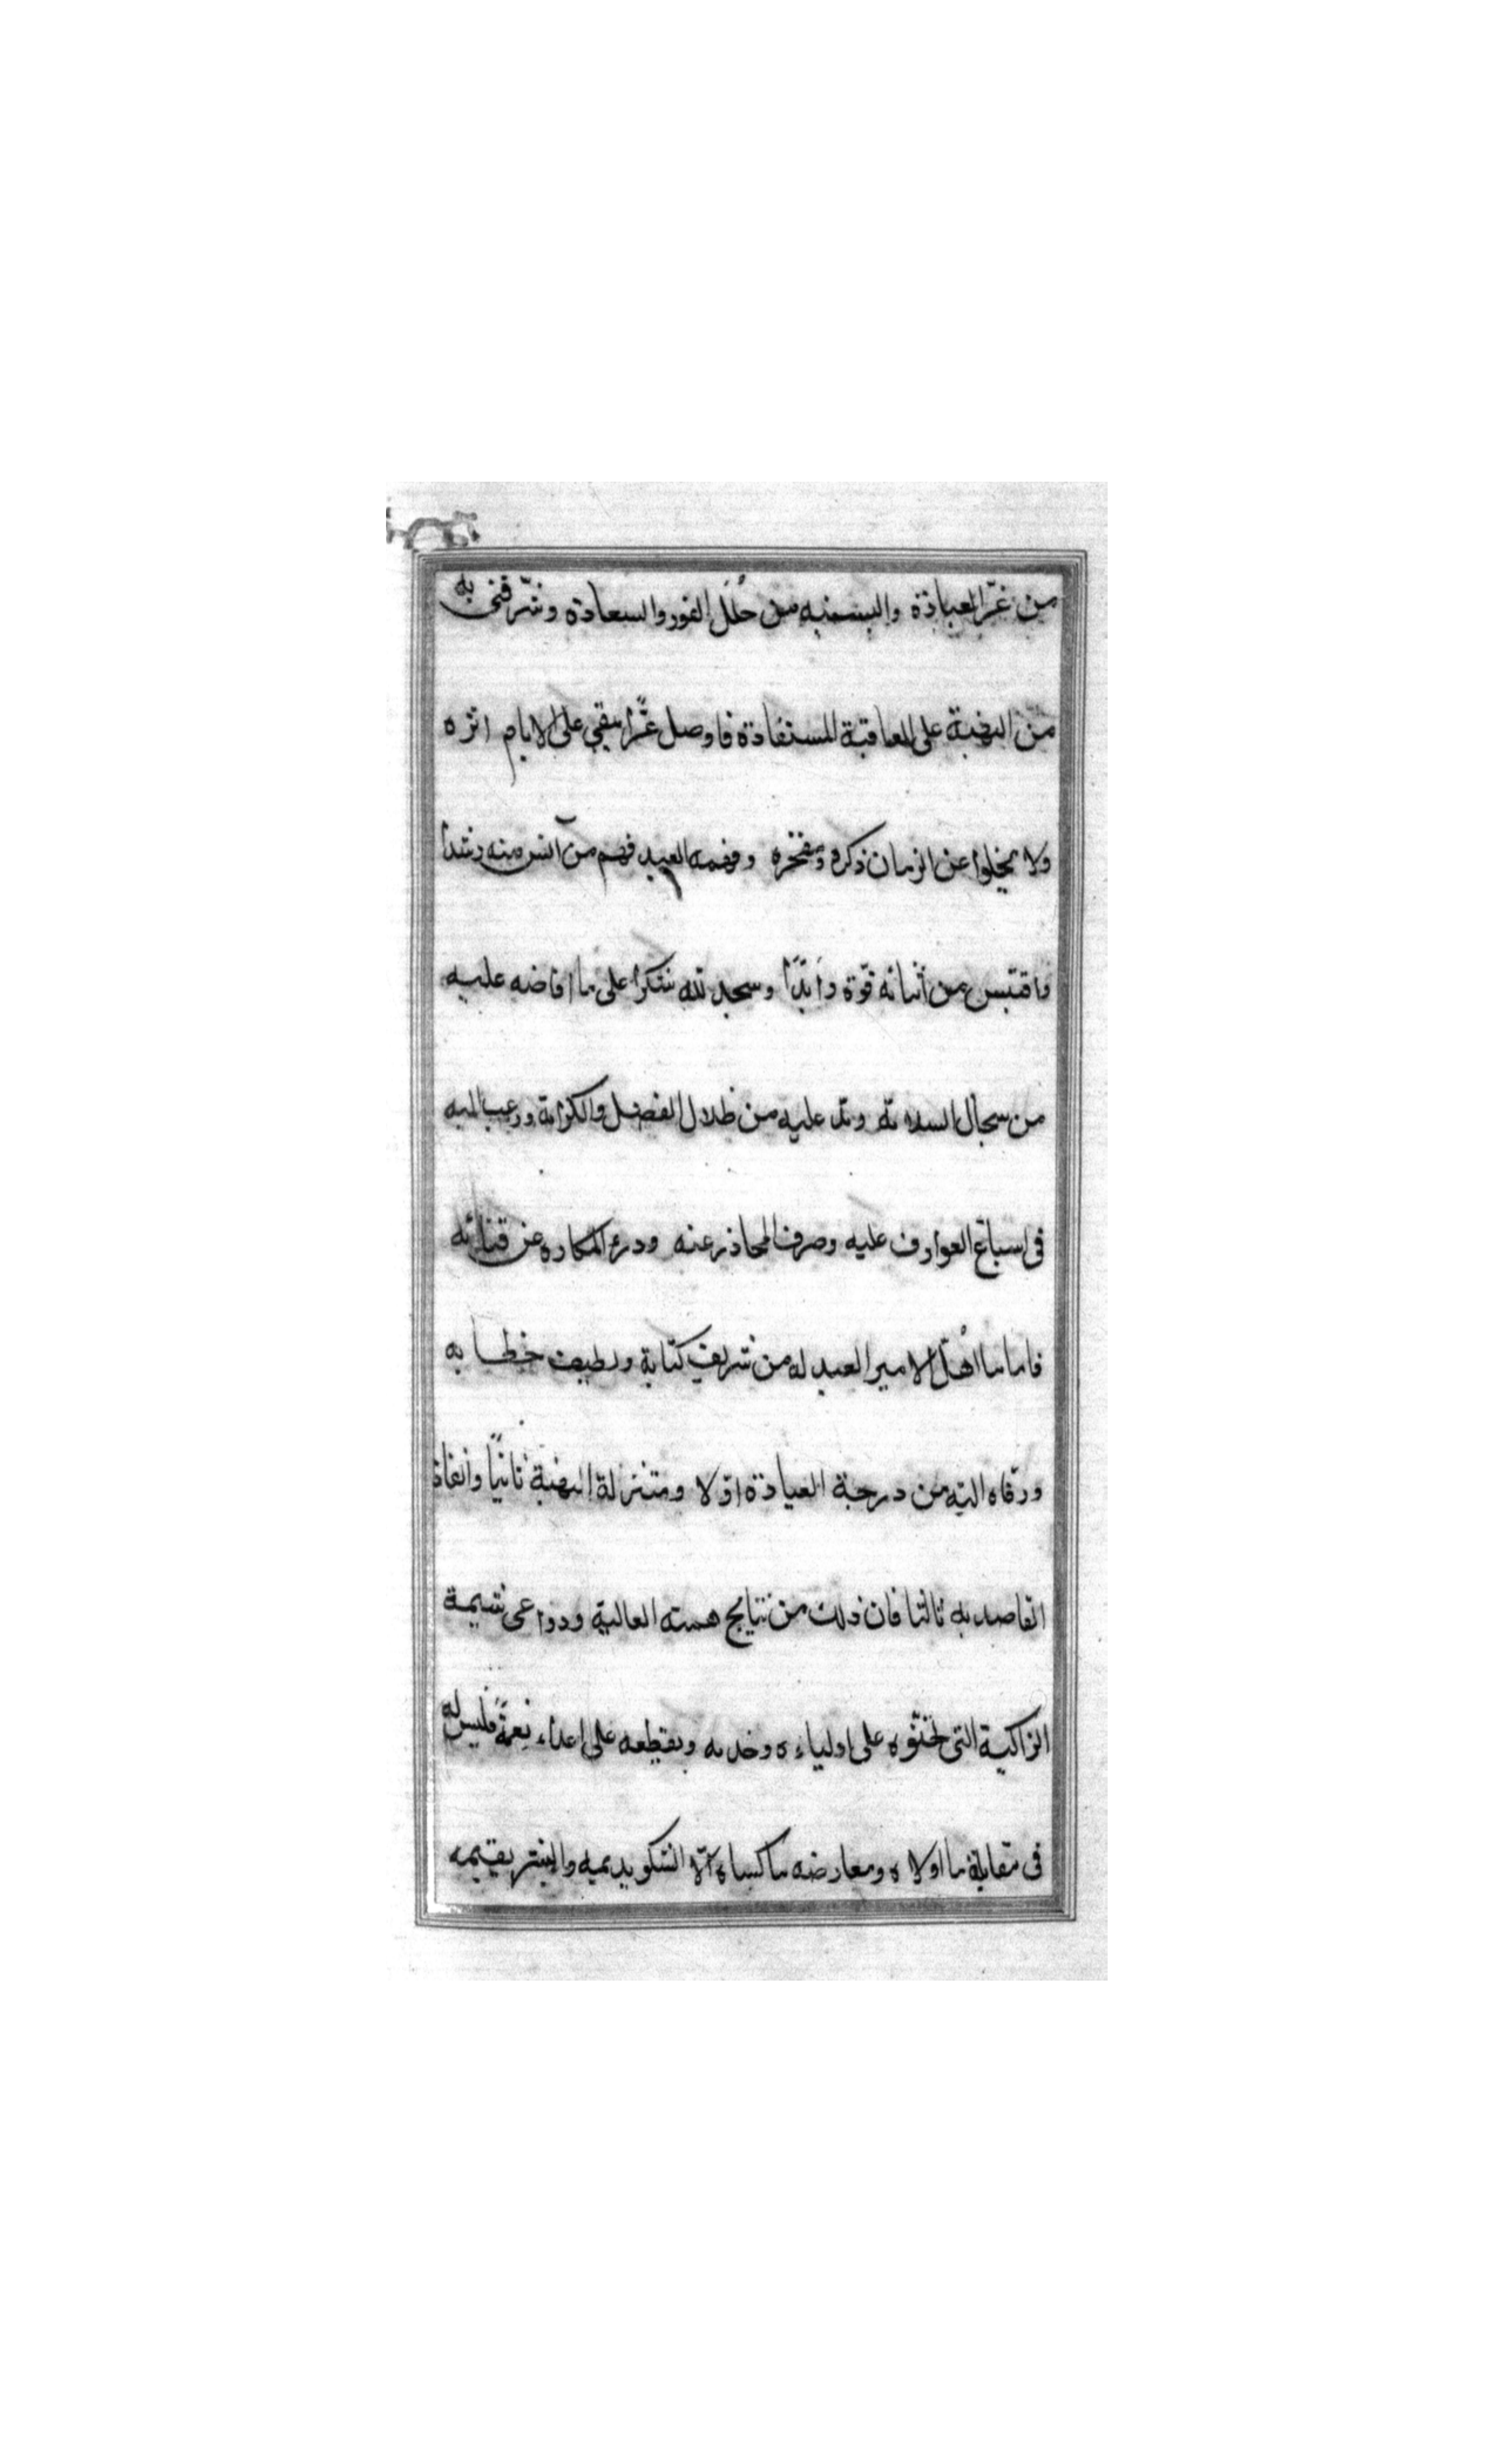 من غرّ العيادة والبسنيه من حُلَل الفوز والسعادة وشرّفني به
من التهنية على العاقبة المستفادة فاوصل عزًّا يبقي على الايام اثره
ولا يخلوا عن الزمان ذكره ومفخره وفهمه العبد فهم من آنس منه رشدا
واقتبس من اثنائه قوّة وأيدًا وسجد لله شكرا على ما افاضه عليه
من سجال السلامة ومدّ عليه من ظلال الفضل والكرامة ورغب اليه
فى اسباغ العوارف عليه وصرف المحاذر عنه ودرء المكاره عن فنائه
فاما ما اهّل الامير العبد له من شريف كتابه ولطيف خطابه
ورقّاه اليه من درجة العيادة اوّلا ومنزلة التهنية ثانيًا وانفاذ
القاصد به ثالثا فان ذلك من نتايج همته العالية ودواعى شيمة
الزاكية التى تحنوه على اولياءه وخدمه وبعطفه على اغذاء نعمة فليس له
فى مقابلة ما اولاه ومعارضه ما كساه الّا الشكر يديمه والنشر يقيمه